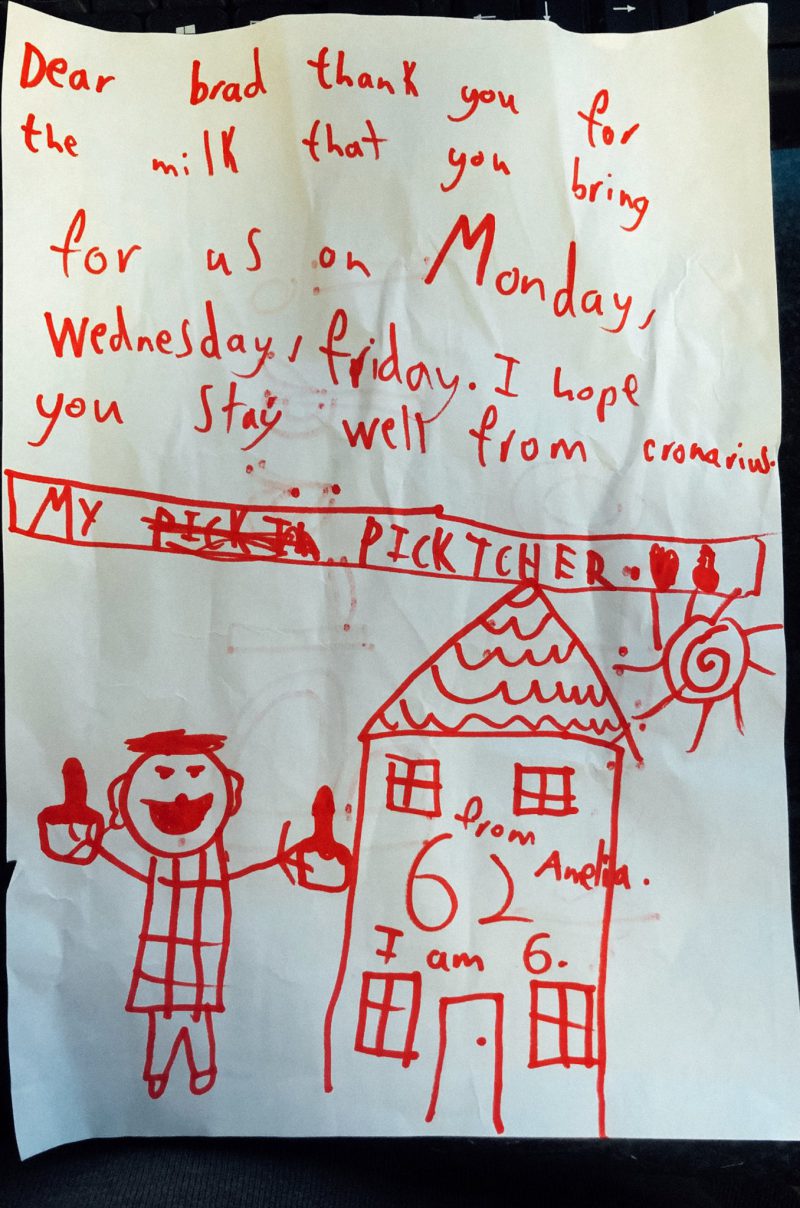 Dear brad thank you for
the milk that you bring
for us on Monday,
Wednesday, friday. I hope
you stay well from cronarius.
MY PICKTCHER.
from
Amelia.
62
I am 6.